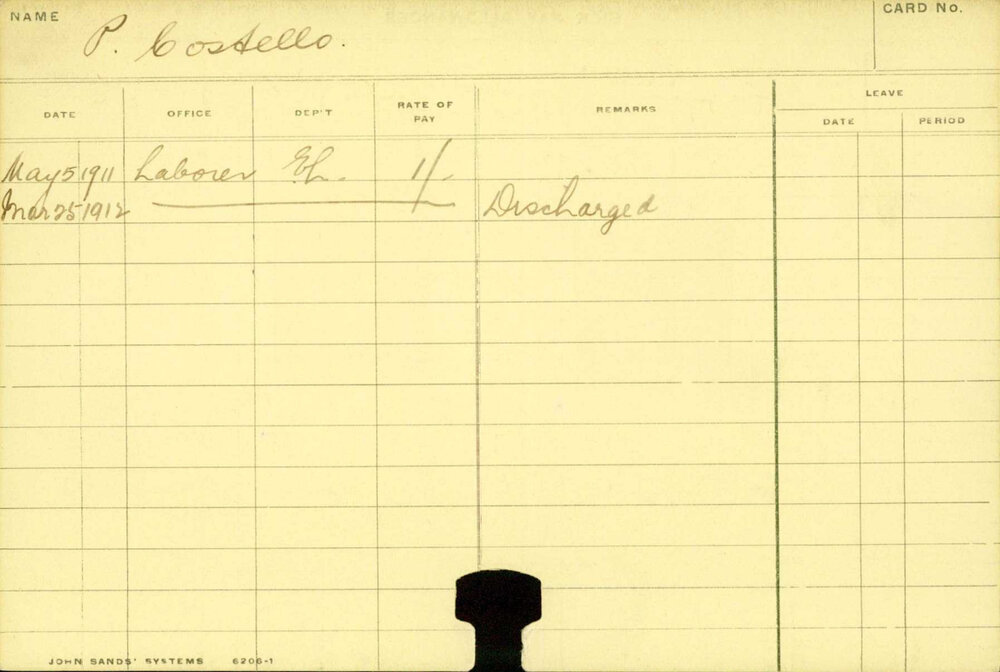 NAME P. Costello. CARD No.
DATE OFFICE DEP'T RATE OF PAY REMARKS LEAVE
DATE PERIOD
May 5 1911 Laborer EL. 11/-
Mar 25 1912 Discharged
JOHN SANDS' SYSTEMS 6206-1